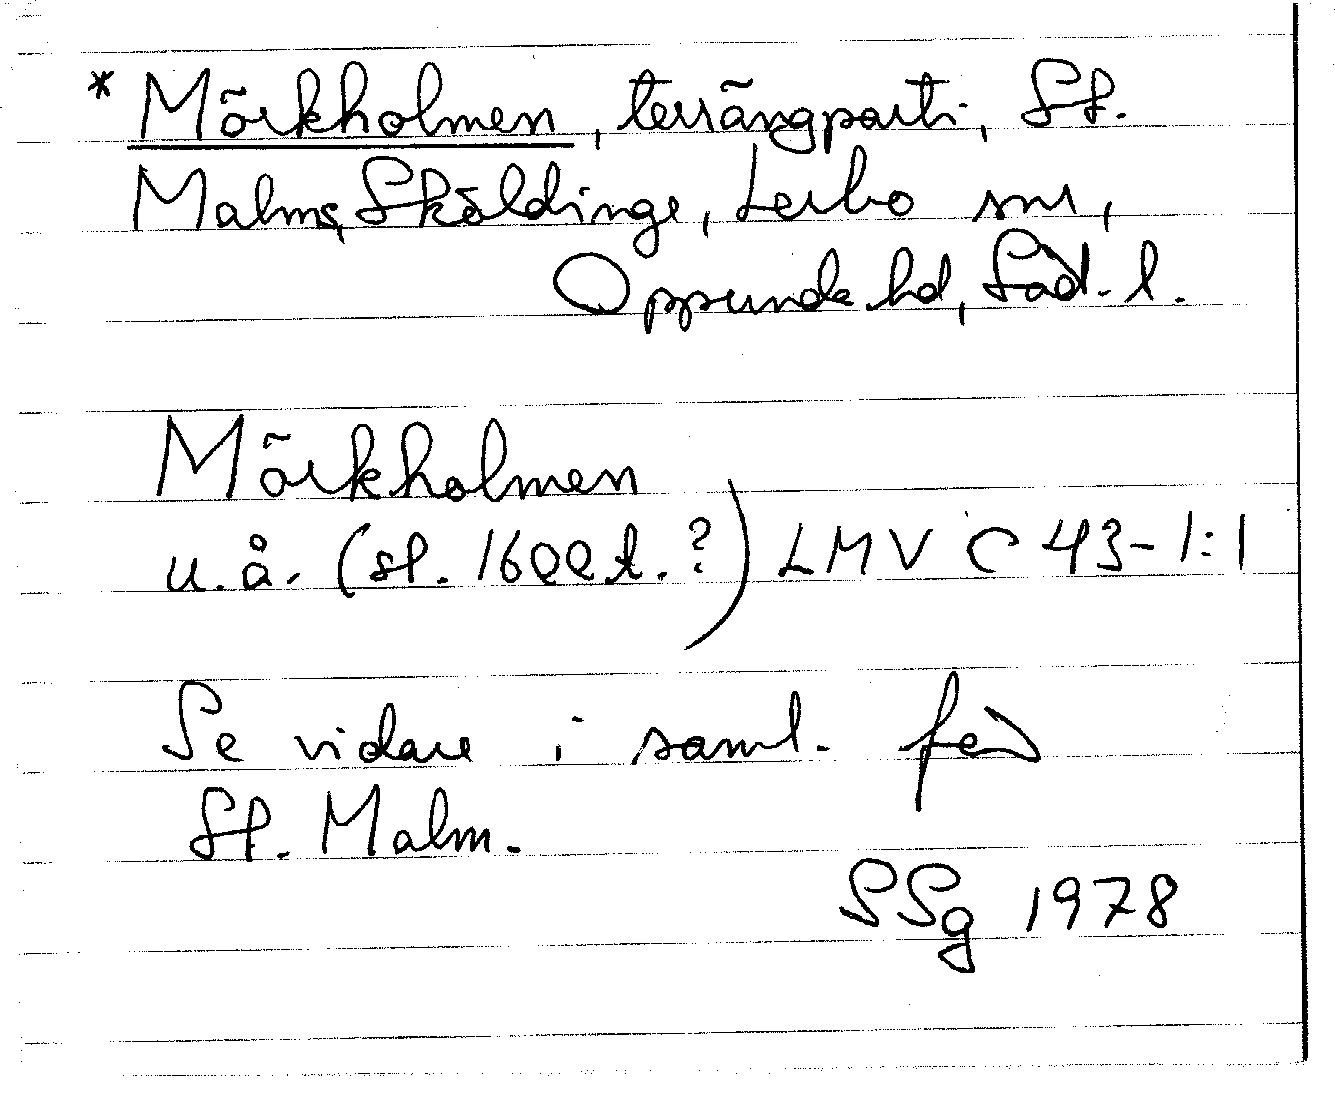 * Mörkholmen, terrängparti, St.
Malms, Sköldinge, Lerbo snr,
Oppunda hd, Söd. l.
Mörkholmen
u.å. (sl. 1600 t. ?) LMV C 43-1:1
Se vidare i saml. för
St. Malm.
SSg 1978